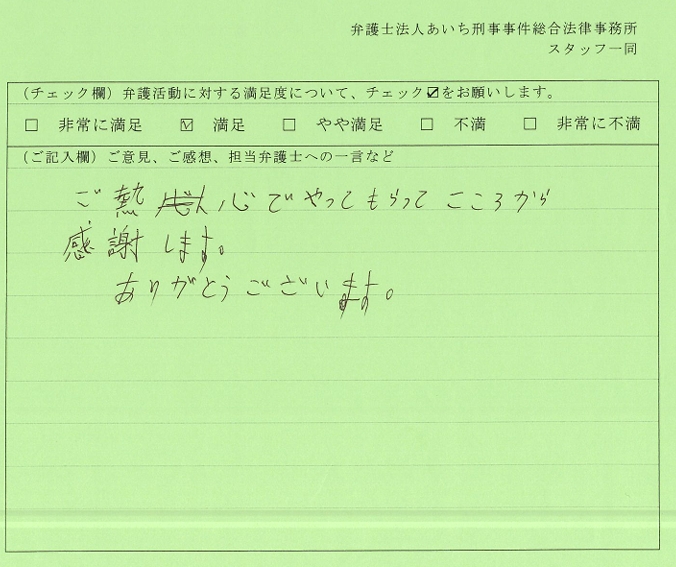 弁護士法人あいち刑事事件総合法律事務所
スタッフ一同
（チェック欄）弁護活動に対する満足度について、チェック☑をお願いします。
□ 非常に満足 ☑ 満足 □ やや満足 □ 不満 □ 非常に不満
（ご記入欄）ご意見、ご感想、担当弁護士への一言など
ご熱心でやってもらってこころから
感謝します。
ありがとうございます。